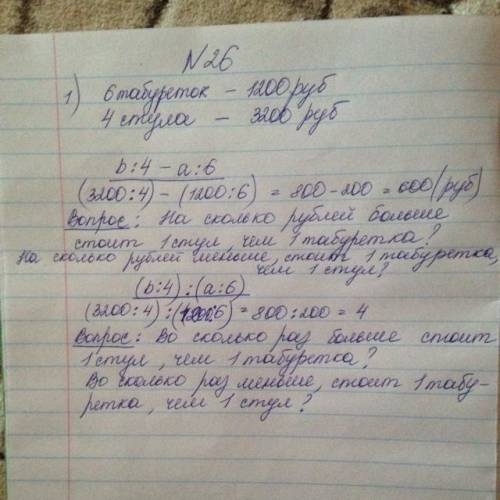 N26
1) 6 табуреток - 1200 руб
4 стула - 3200 руб
b:4 - a:6
(3200:4) - (1200:6) = 800 - 200 = 600 (руб)
Вопрос: На сколько рублей больше
стоит 1 стул, чем 1 табуретка?
На сколько рублей меньше, стоит 1 табуретка,
чем 1 стул?
(b:4) : (a:6)
(3200:4) : (1200:6) = 800:200 = 4
Вопрос: Во сколько раз больше стоит
1 стул, чем 1 табуретка?
Во сколько раз меньше, стоит 1 табу-
ретка, чем 1 стул?